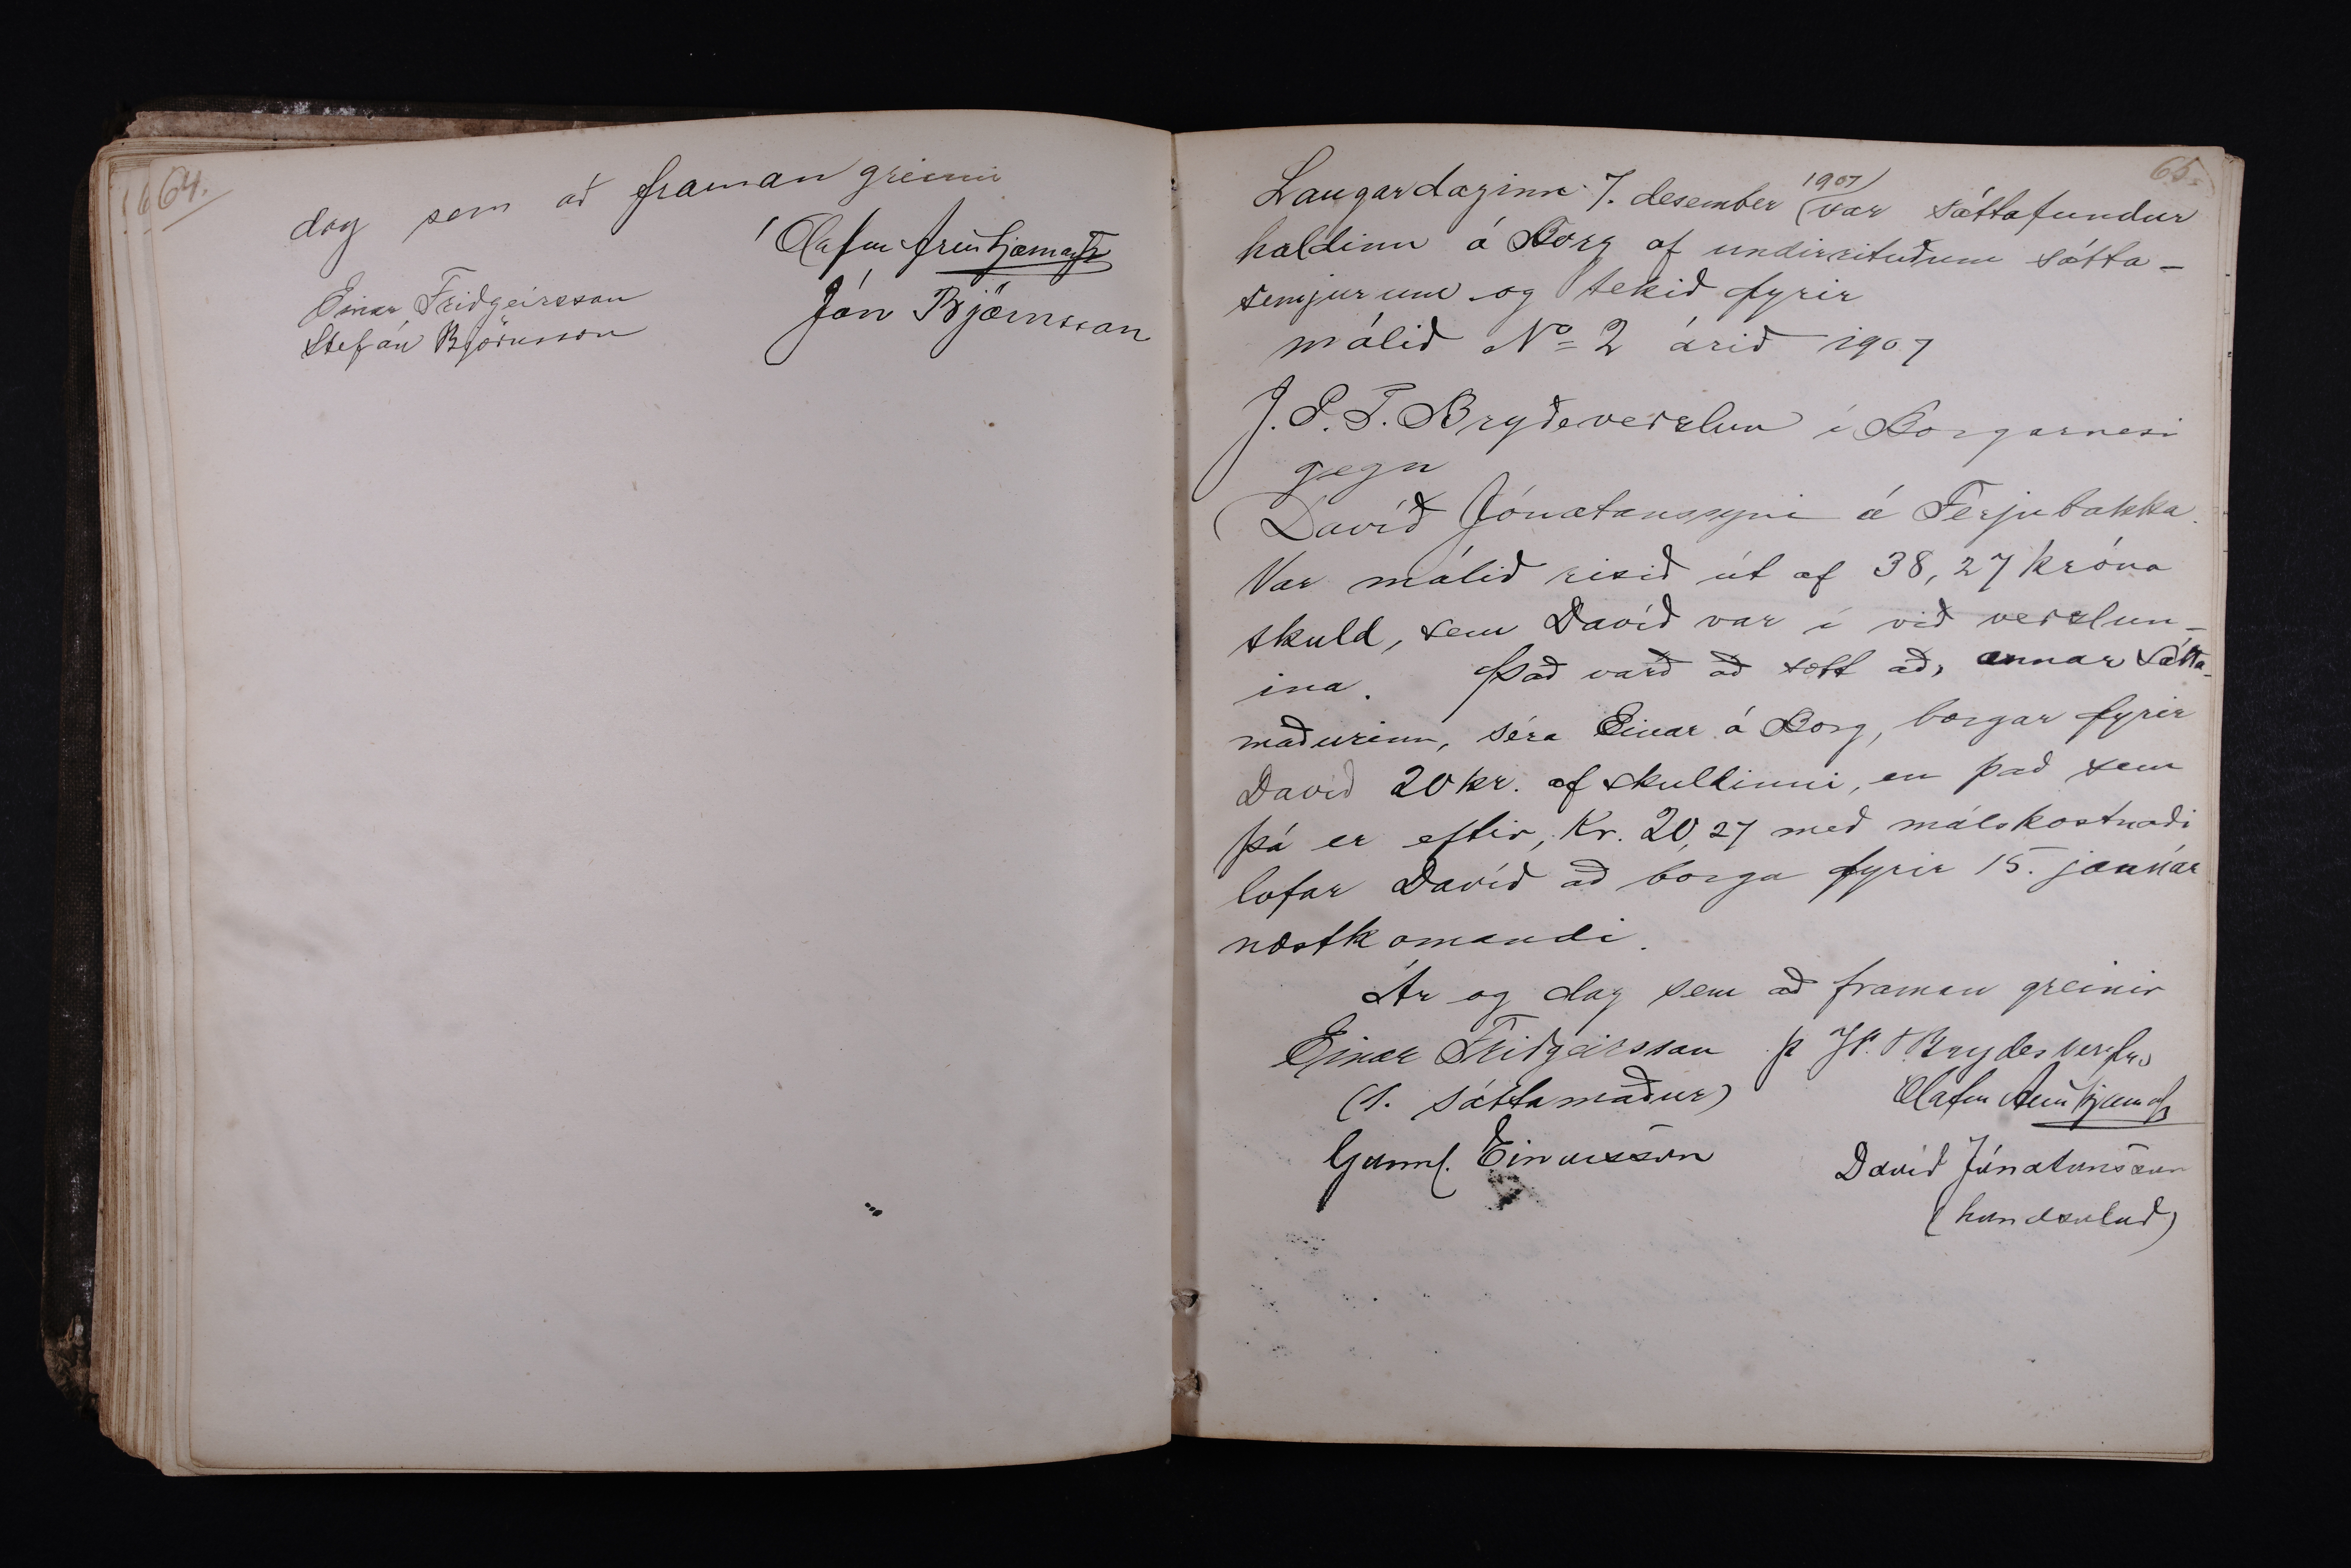 64.
dag sem að framan greinir
Ólafur Arinbjarnars
Jón Björnsson
Einar Friðgeirsson
Stefán Björnsson
65.
Laugardaginn 7. desember 1907 var sáttafundur
haldinn á Borg af undirrituðum sátta-
semjurum og tekið fyrir
málið No 2 árið 1907
J. P. T. Brydeverslun í Borgarnesi
gegn
Davíð Jónatanssyni á Ferjubakka.
Var málið risið út af 38,27 króna
skuld, sem Davíð var í við verslun-
ina. Það varð að sætt að, annar sátta-
maðurinn, séra Einar á Borg, borgar fyrir
Davíð 20 kr. af skuldinni, en það sem
þá er eftir, Kr. 20,27 með málskostnaði
lofar Davíð að borga fyrir 15. janúar
næstkomandi.
Ár og dag sem að framan greinir
Einar Friðgeirsson
(1. sáttamaður)
Gunnl. Einarsson
p J.P.T. Brydes
Ólafur Arinbjarnars
Davíð Jónatansson
(handsalað)